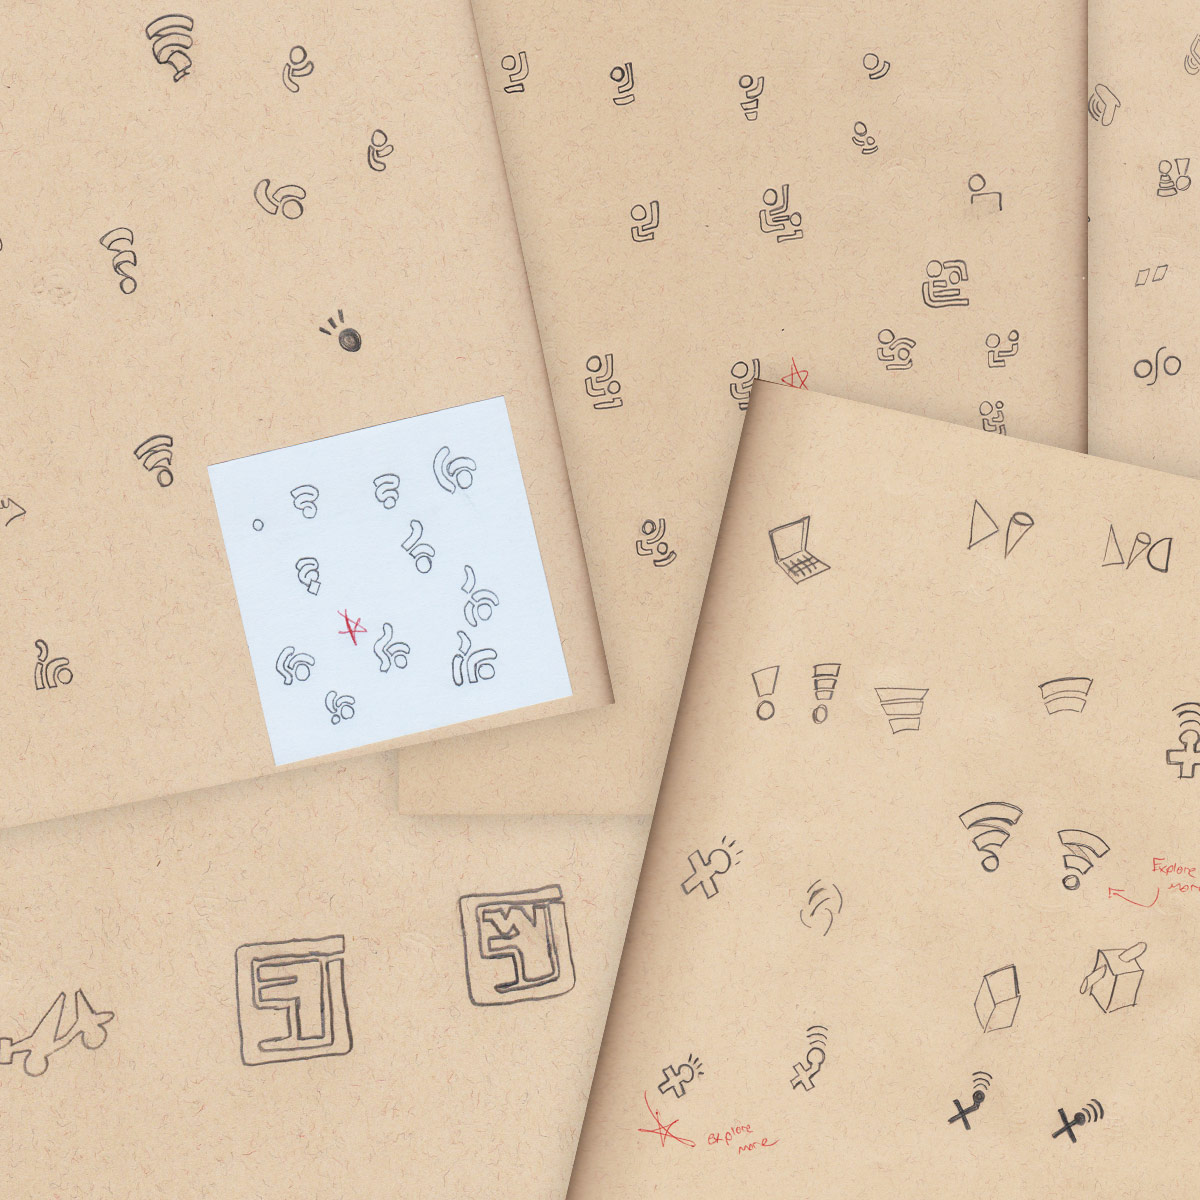 Explore
more
explore
more